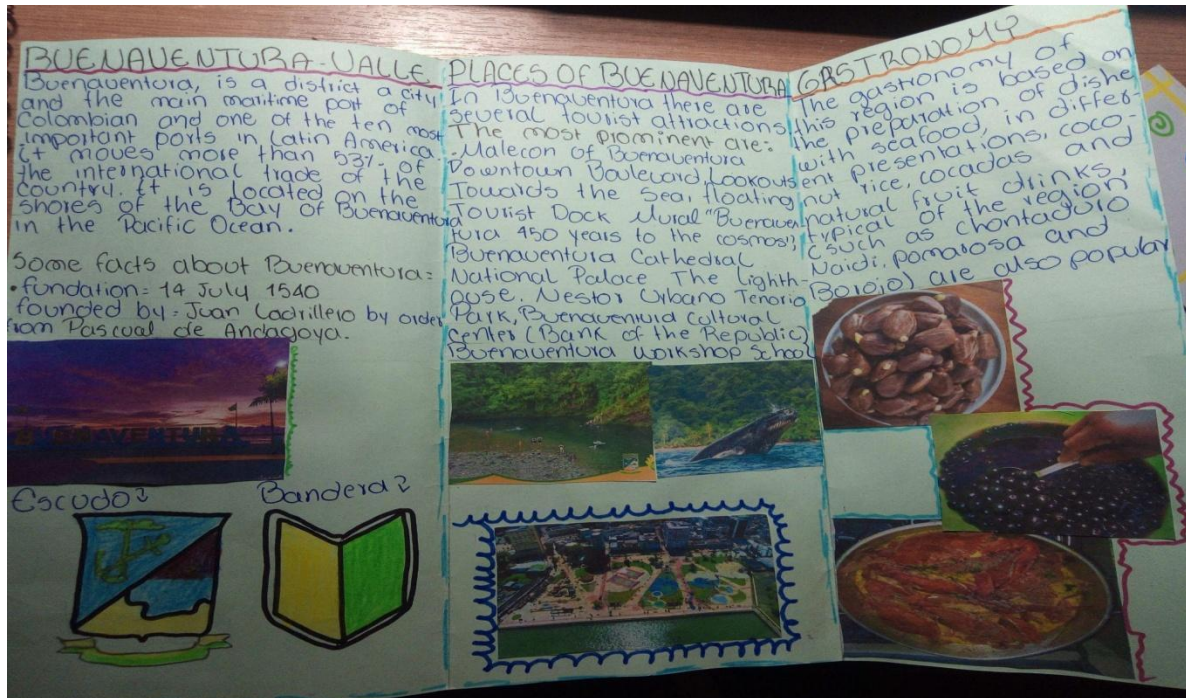 BUENAVENTURA-VALLE
Buenaventura, is a district a city
and the main maritime port of
Colombian and one of the ten most
important ports in Latin America.
it moves more than 53% of
the international trade of the
country. it is located on the
shores of the Bay of Buenaventura
in the Pacific Ocean.
Some facts about Buenaventura:
•fundation= 14 July 1540
founded by= Juan Ladrillero by order
from Pascual de Andagoya.
BUENAVENTURA
Escudo
Bandera
PLACES OF BUENAVENTURA
In Buenaventura there are
several tourist attractions
The most prominent are:
Malecon of Buenaventura
Downtown Boulevard, Lookouts
Towards the Sea, floating
Tourist Dock Mural "Buenaven
tura 450 years to the cosmos",
Buenaventura Cathedral
National Palace The Lighth-
ouse, Nestor Urbano Tenorio
Park, Buenaventura Cultural
Center (Bank of the Republic)
Buenaventura Workshop School
GASTRONOMY
The gastronomy of
this region is based on
the preparation of dishe
with seafood, in differ-
ent presentations, coco-
nut rice, cocadas and
natural fruit drinks,
typical of the region
(such as chontaduro
Naidi, pomarosa and
Borojo) are also popular